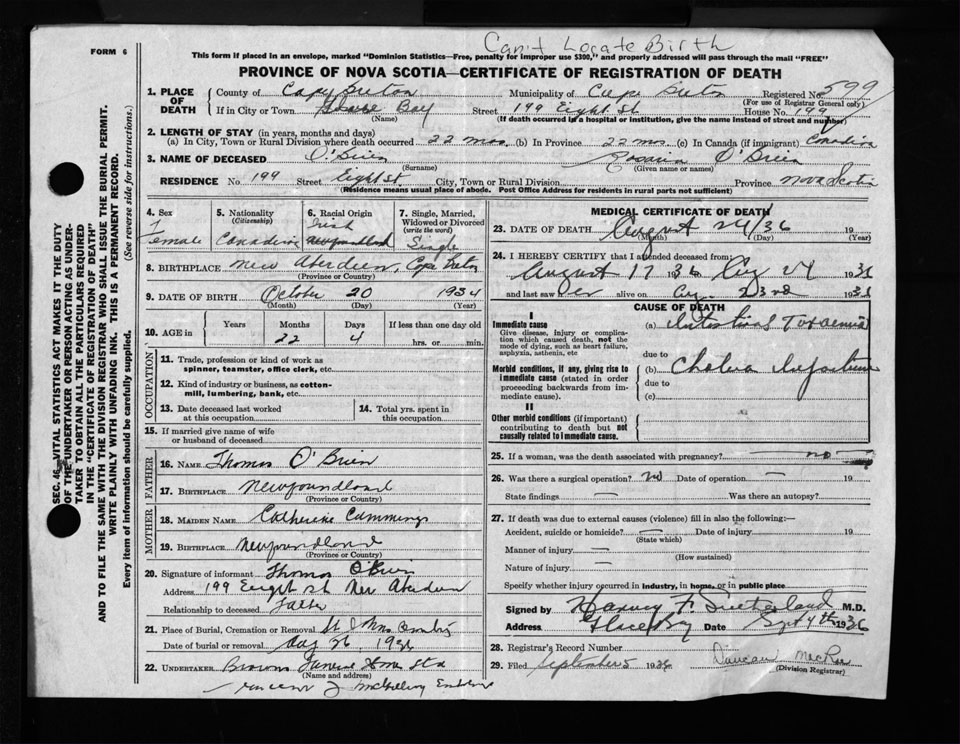 Can't Locate Birth
FORM 6
This form if placed in an envelope, marked "Dominion Statistics—Free, penalty for improper use $300," and properly addressed will pass through the mail "FREE"
PROVINCE OF NOVA SCOTIA—CERTIFICATE OF REGISTRATION OF DEATH
1. PLACE OF DEATH
County of Cape Breton Municipality of Cape Breton Registered No. 599
(For use of Registrar General only)
If in City or Town Glace Bay Street 199 Eight St House No. 199
(Name) (If death occurred in a hospital or institution, give the name instead of street and number)
2. LENGTH OF STAY (in years, months and days)
(a) In City, Town or Rural Division where death occurred 22 mos. (b) In Province 22 mos. (c) In Canada (if immigrant) Canadian
3. NAME OF DECEASED O'Brien O'Brien
(Surname) (Given name or names)
RESIDENCE No. 199 Street Eight St. City, Town or Rural Division Province Nova Scotia
(Residence means usual place of abode. Post Office Address for residents in rural parts not sufficient)
SEC. 46, VITAL STATISTICS ACT MAKES IT THE DUTY
OF THE UNDERTAKER OR PERSON ACTING AS UNDER-
TAKER TO OBTAIN ALL THE PARTICULARS REQUIRED
IN THE "CERTIFICATE OF REGISTRATION OF DEATH"
AND TO FILE THE SAME WITH THE DIVISION REGISTRAR WHO SHALL ISSUE THE BURIAL PERMIT.
WRITE PLAINLY WITH UNFADING INK. THIS IS A PERMANENT RECORD.
Every item of information should be carefully supplied. (See reverse side for instructions.)
4. Sex
Female
5. Nationality
(Citizenship)
Canadian
6. Racial Origin
Irish
Newfoundland
7. Single, Married, Widowed or Divorced
(write the word)
Single
8. BIRTHPLACE New Aberdeen, Cape Breton
(Province or Country)
9. DATE OF BIRTH October 20 1934
(Month) (Day) (Year)
10. AGE in Years Months Days If less than one day old
22 4 hrs. or min.
OCCUPATION
11. Trade, profession or kind of work as
spinner, teamster, office clerk, etc.
12. Kind of industry or business, as cotton-
mill, lumbering, bank, etc.
13. Date deceased last worked
at this occupation
14. Total yrs. spent in
this occupation
15. If married give name of wife
or husband of deceased
FATHER
16. NAME Thomas O'Brien
17. BIRTHPLACE Newfoundland
(Province or Country)
MOTHER
18. MAIDEN NAME Catherine Cummings
19. BIRTHPLACE Newfoundland
(Province or Country)
20. Signature of informant Thomas O'Brien
Address 199 Eight St New Aberdeen
Relationship to deceased Father
21. Place of Burial, Cremation or Removal
Date of burial or removal Aug 26, 1936
22. UNDERTAKER
(Name and address)
MEDICAL CERTIFICATE OF DEATH
23. DATE OF DEATH August 24/36 19
(Month) (Day) (Year)
24. I HEREBY CERTIFY that I attended deceased from:
August 17 36 Aug 24 1936
and last saw her alive on Aug. 23rd 193
CAUSE OF DEATH
I
Immediate cause
Give disease, injury or complica-
tion which caused death, not the
mode of dying, such as heart failure,
asphyxia, asthenia, etc
(a) Intestinal Toxaemia
due to
Morbid conditions, if any, giving rise to
immediate cause (stated in order
proceeding backwards from im-
mediate cause).
(b) Cholera Infantum
due to
(c)
II
Other morbid conditions (if important)
contributing to death but not
causally related to immediate cause.
25. If a woman, was the death associated with pregnancy? no
26. Was there a surgical operation? no Date of operation — 19
State findings — Was there an autopsy?
27. If death was due to external causes (violence) fill in also the following:—
Accident, suicide or homicide? — Date of injury 19
(State which)
Manner of injury —
(How sustained)
Nature of injury —
Specify whether injury occurred in industry, in home, or in public place
Signed by Harvey F. Sutherland M.D.
Address Glace Bay Date Sept 4th 1936
28. Registrar's Record Number
29. Filed September 5 1936 Duncan MacRae
(Division Registrar)